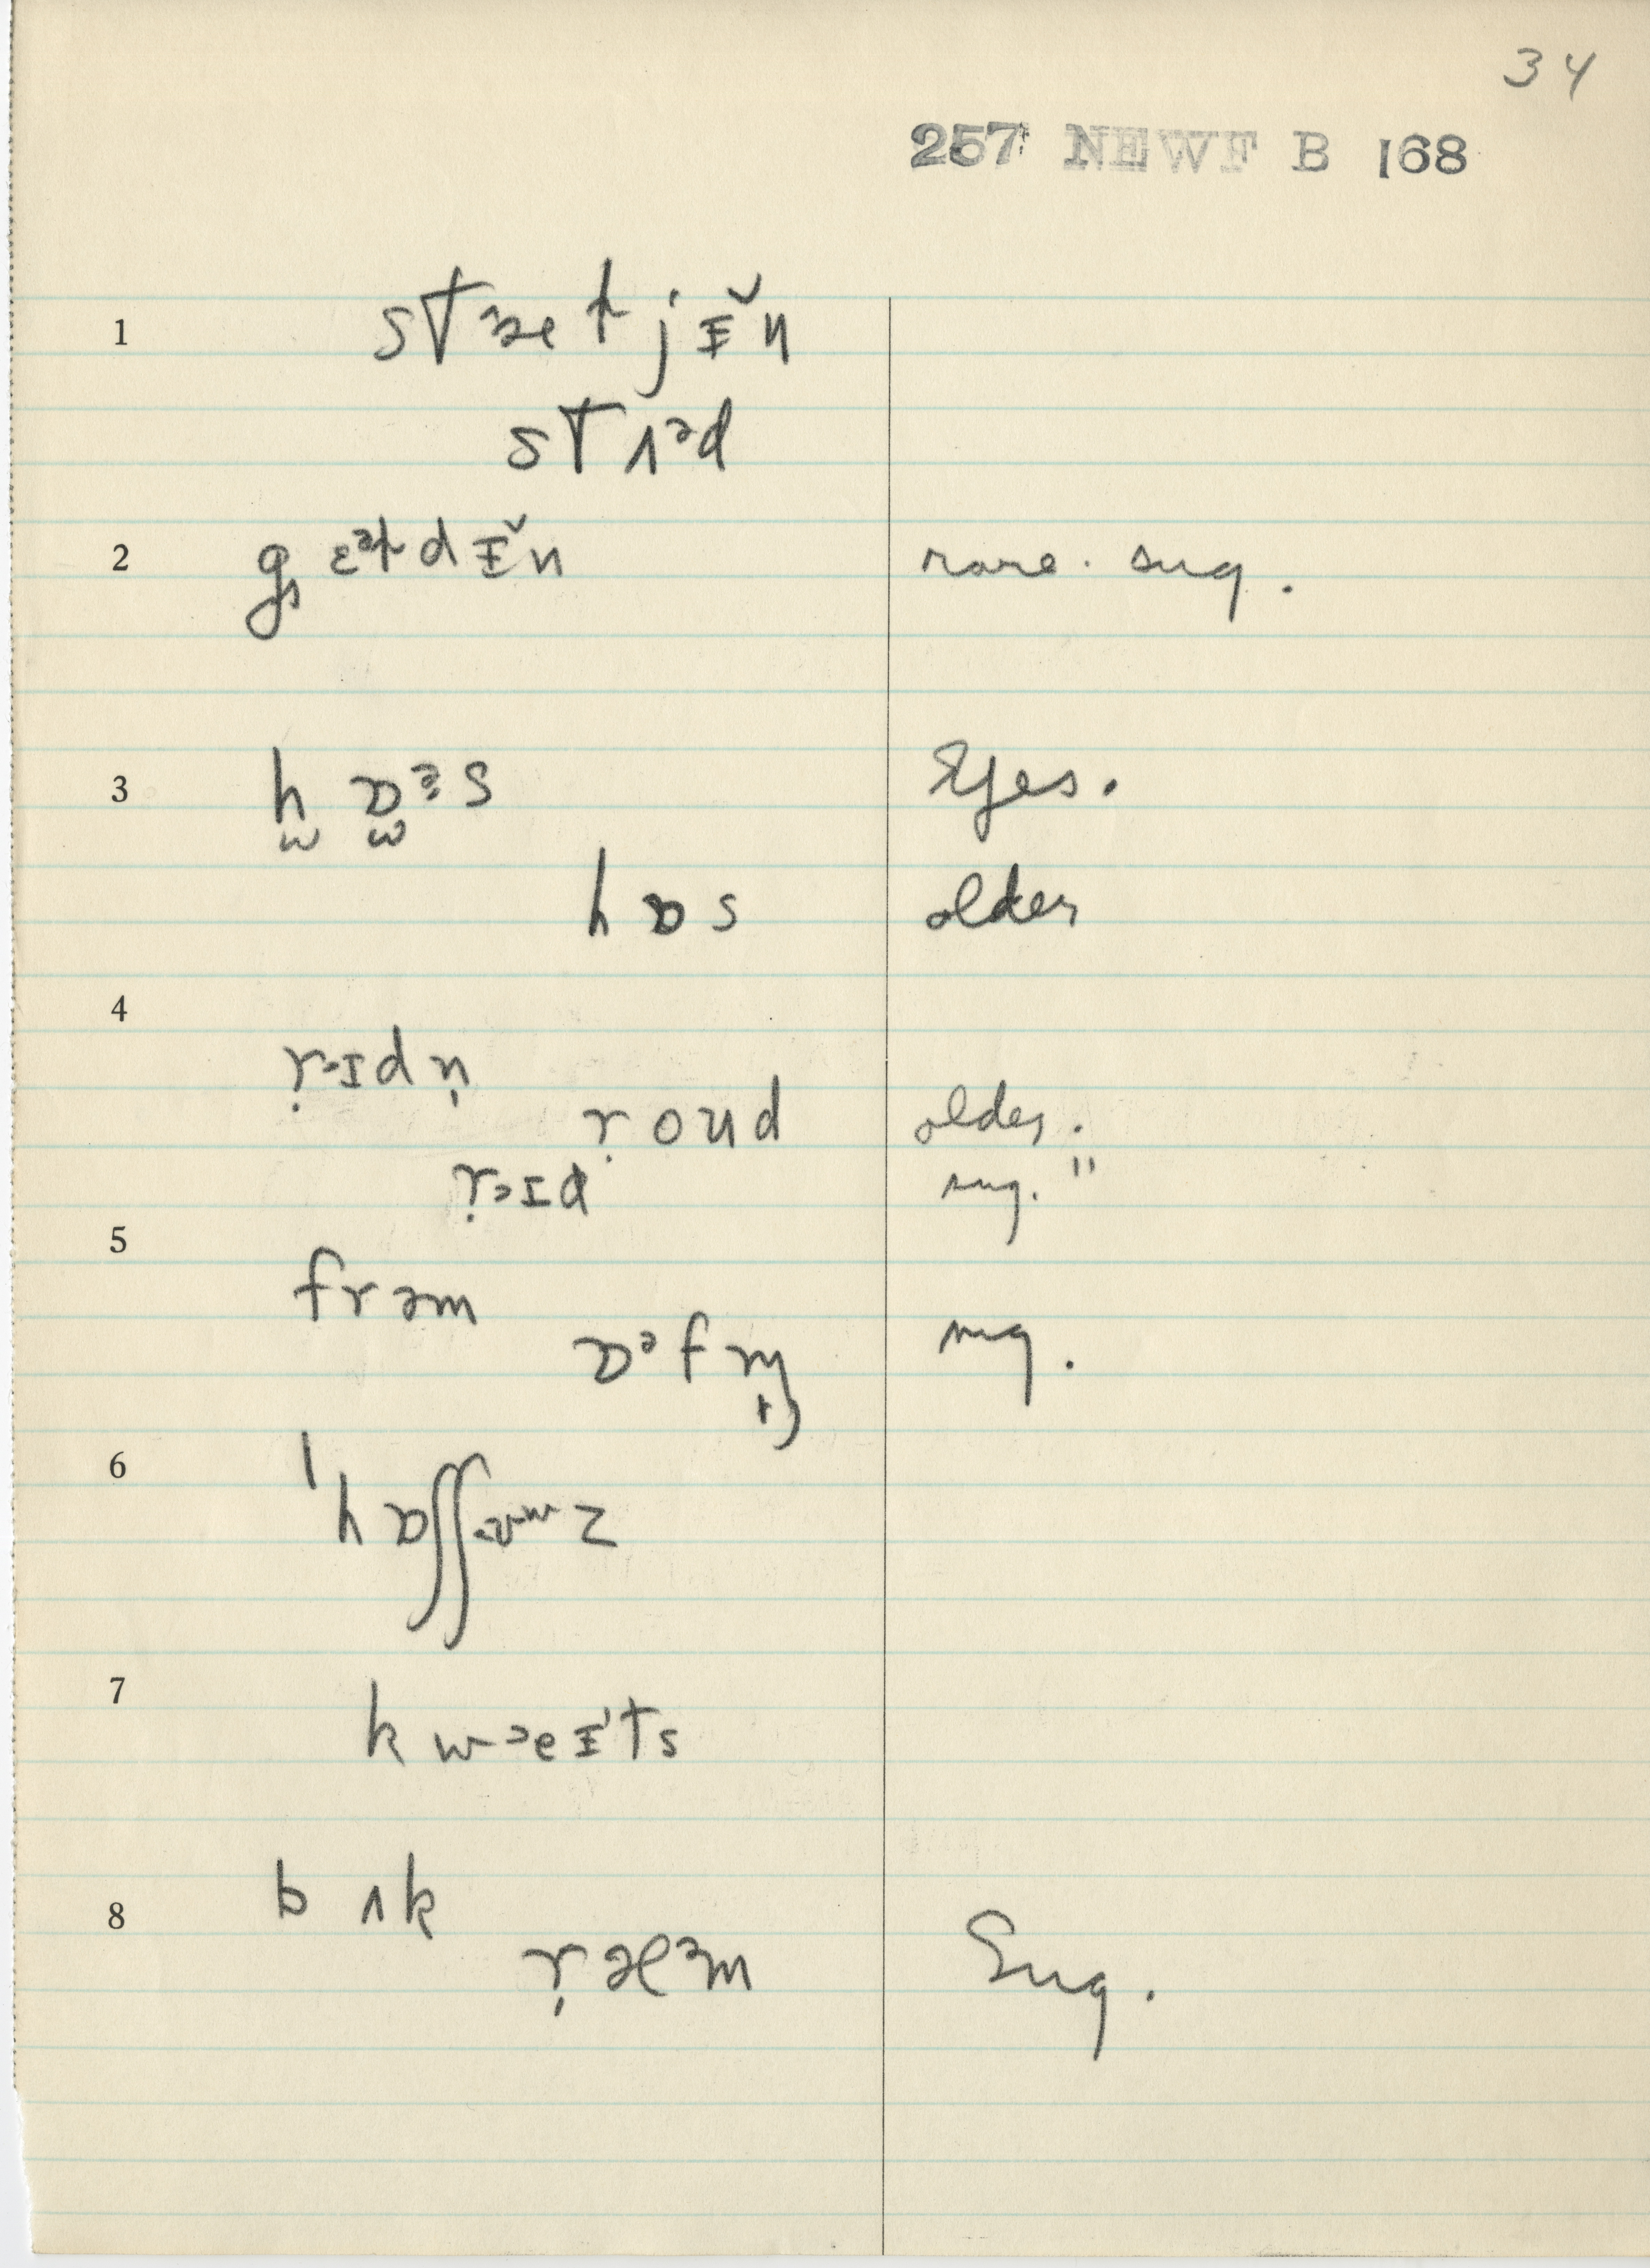 34
257 NEWF B 168
1 sTɜet jɪ̆n
sT ʌᵊd
2 gɛᵊt dɪ̆n rare. sug.
3 h̫ ɒ̫ᵊs Eyes.
hɒs older
4
r̩ɜɪdn̩
r̩oud older.
r̩ɜɪd sug. "
5
frəm
ɒᵊfm̩ sug.
6 ˈhɒʃʃ z
7
kwɜeɪts
8 bʌk
r̩æᵊm Sug.